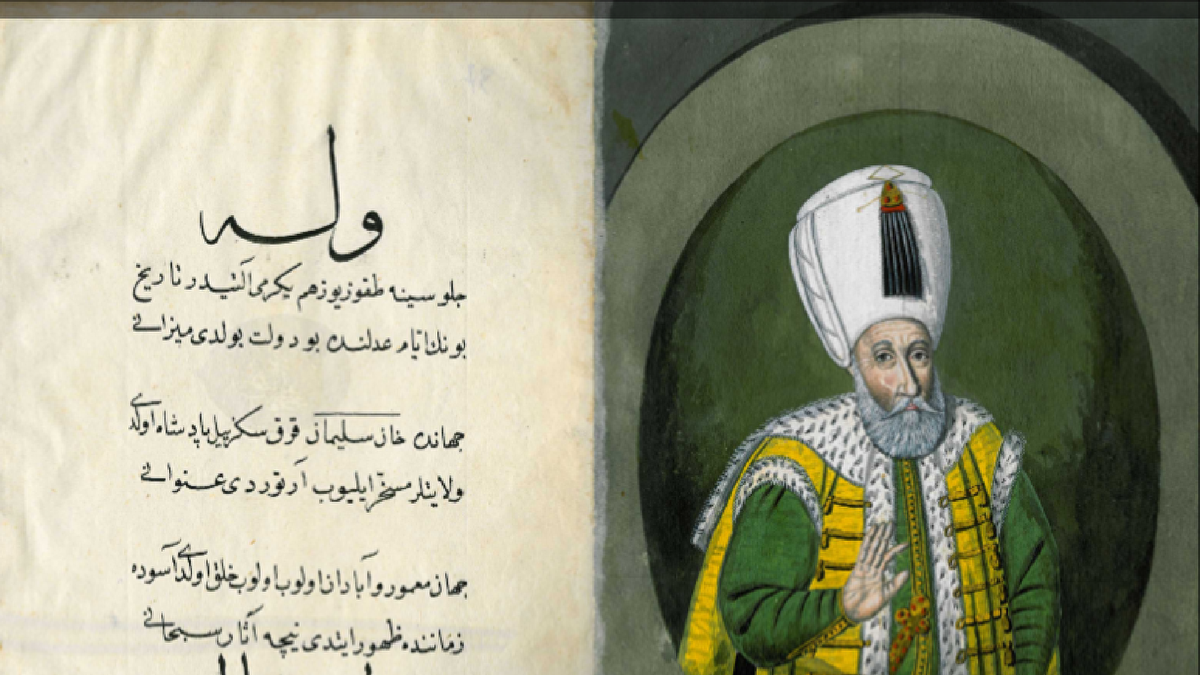 وله
جلوسینه طقوز یوز هم یکرمی التیدر تاریخ
بونك ایام عدلنده بو دولت بولدی میزانی
جهانده خان سلیمان قرق سکز ییل پادشاه اولدی
ولایتلر مسخّر ایلیوب آرتوردی عنوانی
جهان معمور و آبادان اولوب اولوب خلق اولدی آسوده
زماننده ظهور ایتدی نیچه آثار سبحانی